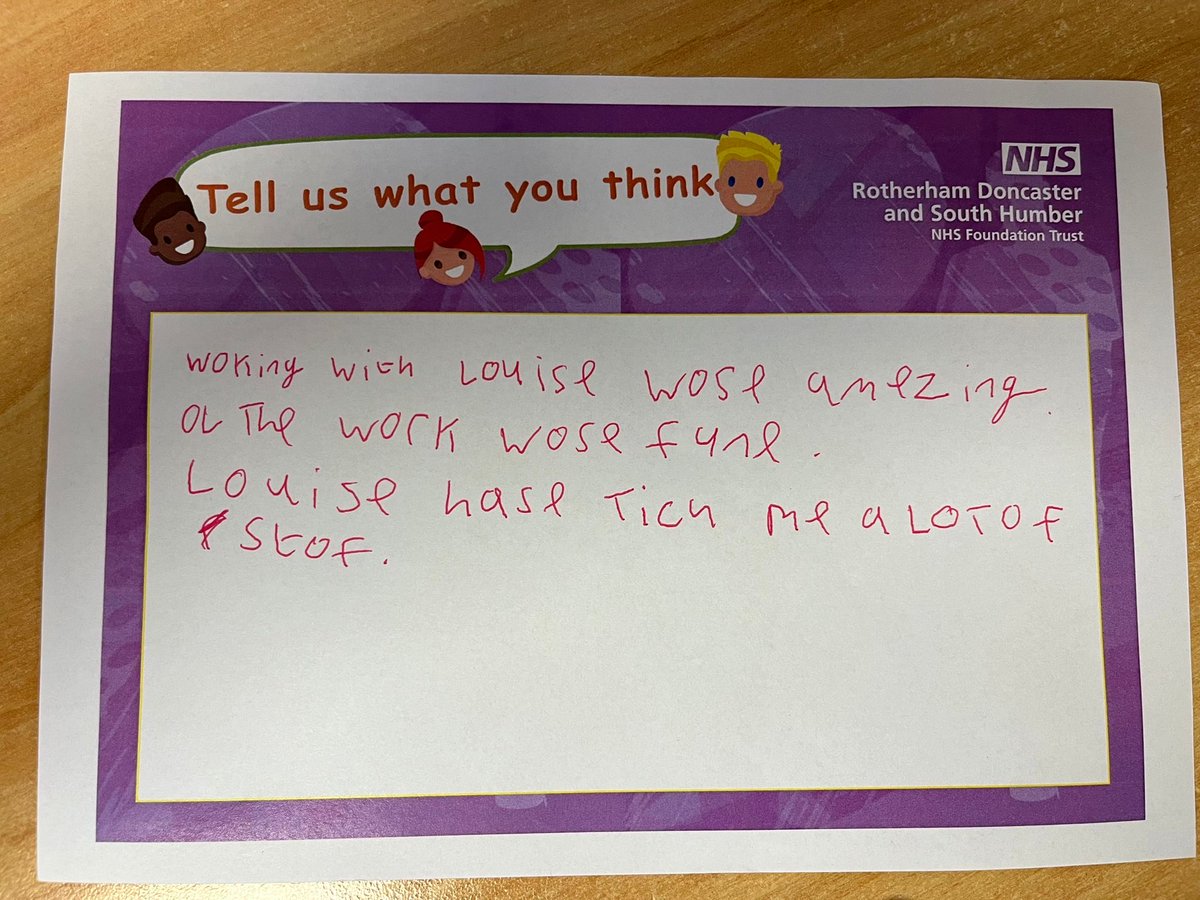 Tell us what you think
NHS
Rotherham Doncaster
and South Humber
NHS Foundation Trust
woking with Louise wose amezing.
OL The work wose fune.
Louise hase Tich me a LOT OF
Stof.